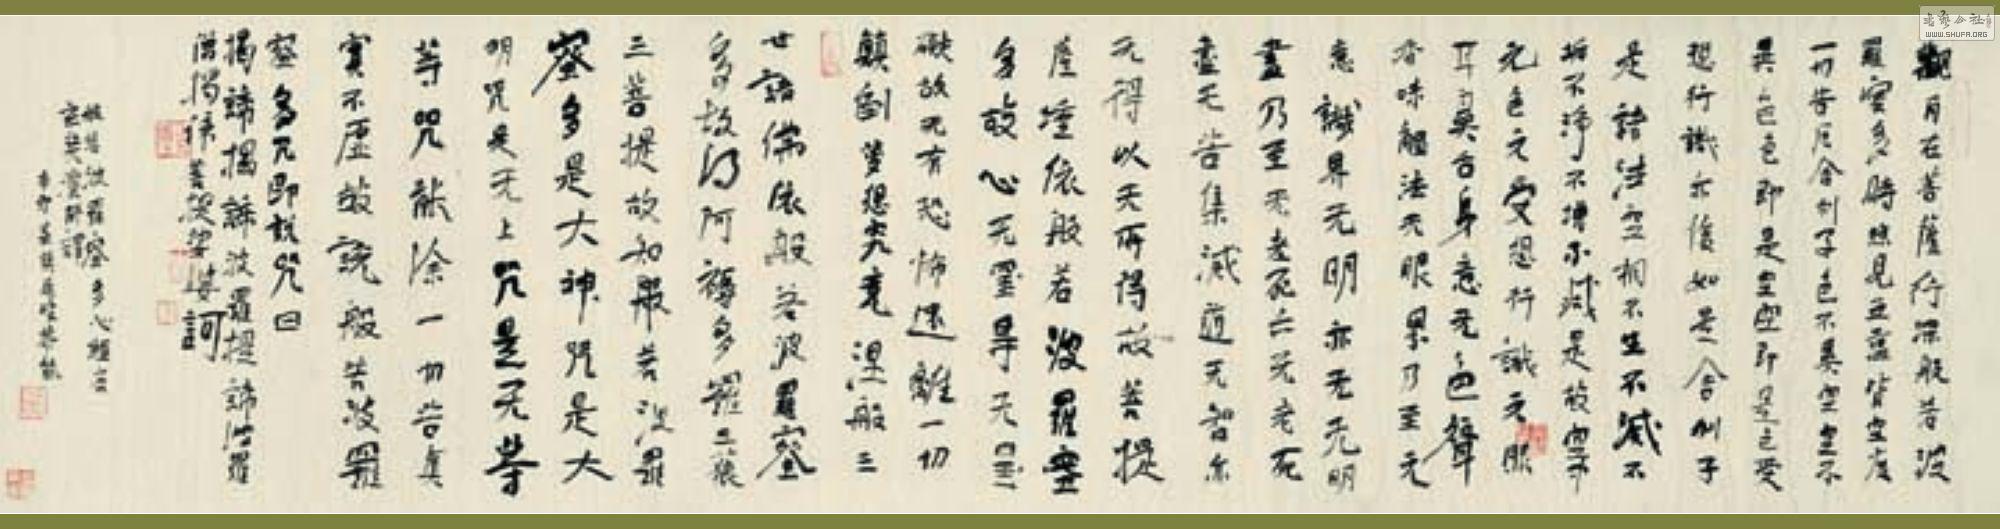 觀自在菩薩行深般若波
羅蜜多時照見五蘊皆空度
一切苦厄舍利子色不異空空不
異色色即是空空即是色受
想行識亦復如是舍利子
是諸法空相不生不滅不
垢不淨不增不減是故空中
无色无受想行識无眼
耳鼻舌身意无色聲
香味觸法无眼界乃至无
意識界无明亦无无明
盡乃至无老死亦无老死
盡无苦集滅道无智亦
无得以无所得故菩提
薩埵依般若波羅蜜
多故心无罣㝵无罣
礙故无有恐怖遠離一切
顛倒夢想究竟涅槃三
世諸佛依般若波羅蜜
多故得阿耨多羅三藐
三菩提故知般若波羅
蜜多是大神咒是大
明咒是无上咒是无等
等咒能除一切苦真
實不虛故說般若波羅
蜜多咒即說咒曰
揭諦揭諦波羅揭諦波羅
僧揭諦菩提娑婆訶
般若波羅蜜多心經
WWW.SHUFA.ORG